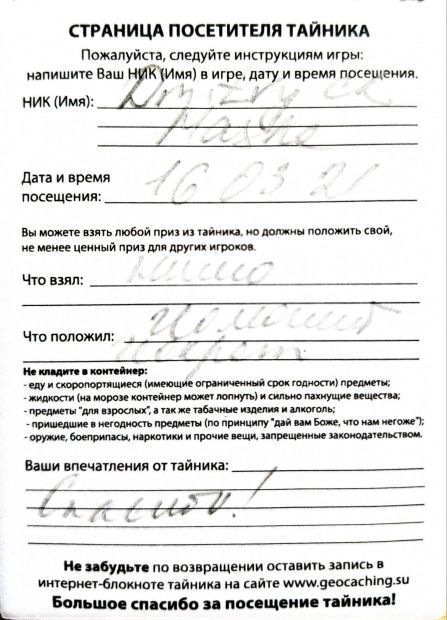 СТРАНИЦА ПОСЕТИТЕЛЯ ТАЙНИКА
Пожалуйста, следуйте инструкциям игры:
напишите Ваш НИК (Имя) в игре, дату и время посещения.
НИК (Имя):
Дата и время
посещения: 16 03 21
Вы можете взять любой приз из тайника, но должны положить свой,
не менее ценный приз для других игроков.
Что взял:
Что положил:
Не кладите в контейнер:
- еду и скоропортящиеся (имеющие ограниченный срок годности) предметы;
- жидкости (на морозе контейнер может лопнуть) и сильно пахнущие вещества;
- предметы "для взрослых", а так же табачные изделия и алкоголь;
- пришедшие в негодность предметы (по принципу "дай вам Боже, что нам негоже");
- оружие, боеприпасы, наркотики и прочие вещи, запрещенные законодательством.
Ваши впечатления от тайника:
Спасибо!
Не забудьте по возвращении оставить запись в
интернет-блокноте тайника на сайте www.geocaching.su
Большое спасибо за посещение тайника!